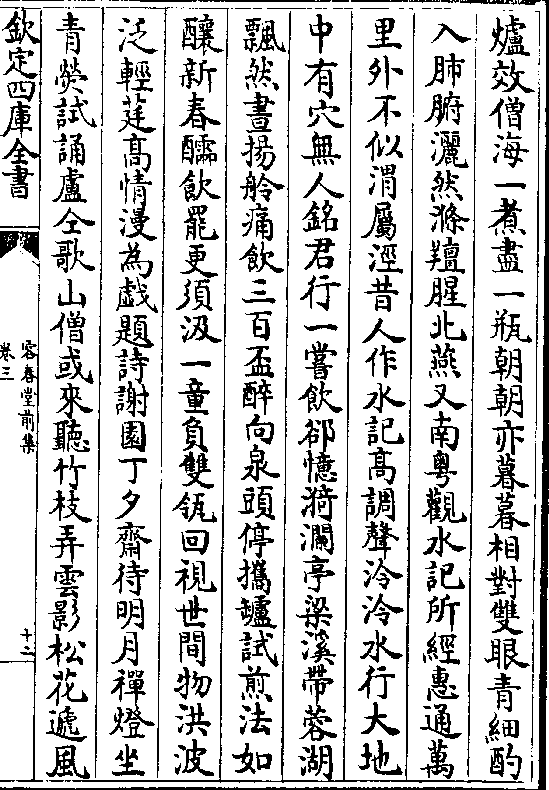 爐效僧海一煮盡一瓶朝朝亦暮暮相對雙眼青細酌
入肺腑灑然滌羶腥北燕又南粤觀水記所經惠通萬
里外不似渭屬涇昔人作水記髙調聲泠泠水行大地
中有穴無人銘君行一嘗飲郤憶漪瀾亭梁溪帶蓉湖
飄然晝揚舲痛飲三百盃醉向泉頭停攜罏試煎法如
釀新春醽飲罷更須汲一童負雙瓴回視世間物洪波
泛輕莛髙情漫為戯題詩謝園丁夕齋待明月禪燈坐
青熒試誦盧仝歌山僧或來聽竹枝弄雲影松花遞風
欽定四庫全書
容春堂前集
卷三
十二